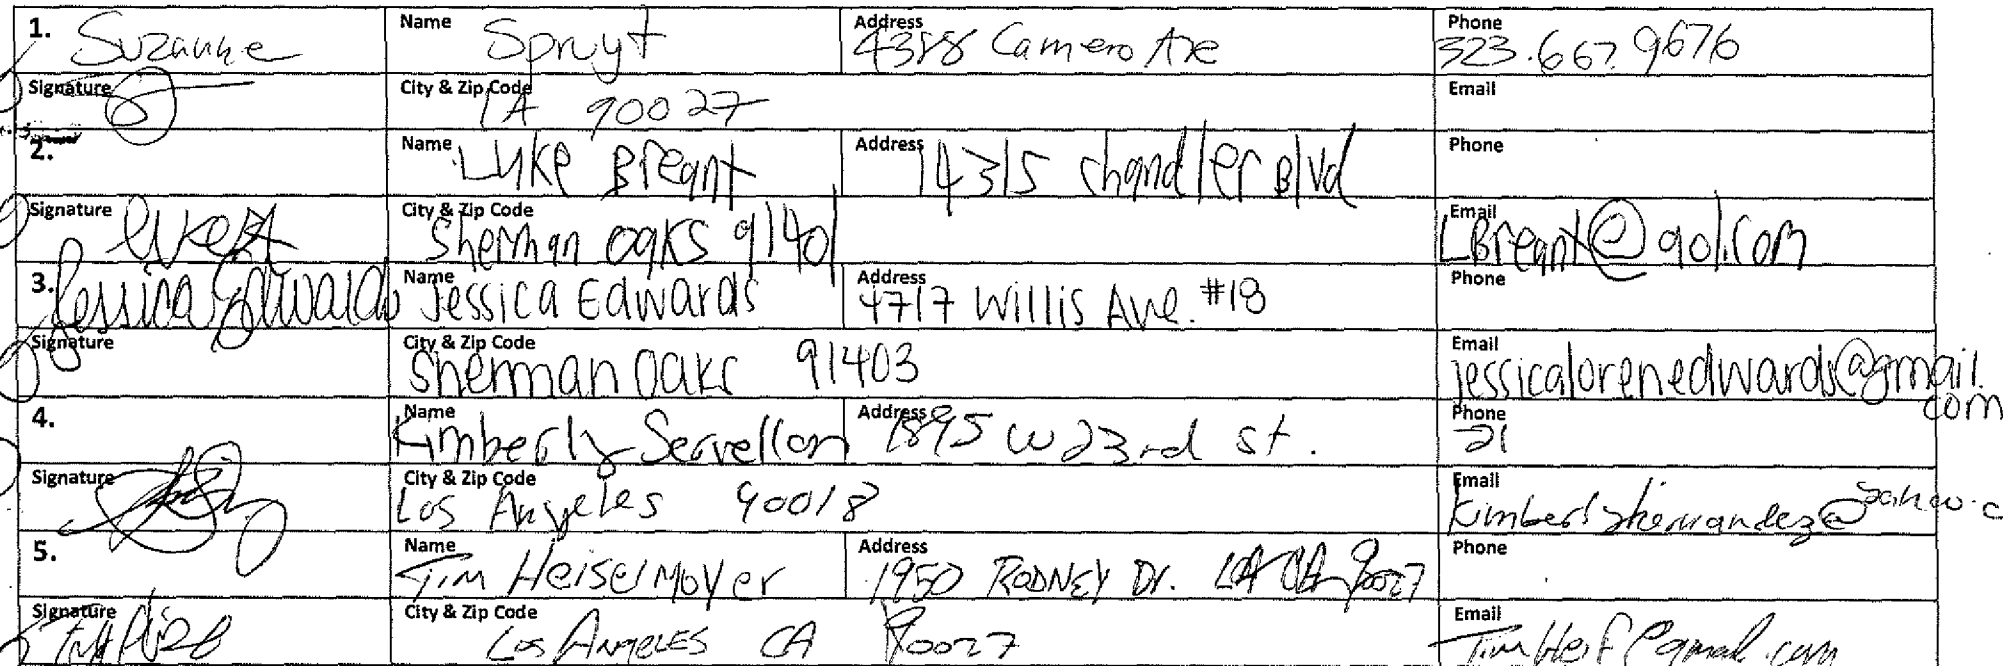 1. Suzanne Name Spruyt Address 4388 Camero Ave Phone 323.667.9676
Signature City & Zip Code LA 90027 Email
2. Name Luke Breant Address 14315 Chandler Blvd Phone
Signature City & Zip Code Sherman oaks 91401 Email LBreant@aol.com
3. Jessica Edwards Name Jessica Edwards Address 4717 Willis Ave. #18 Phone
Signature City & Zip Code Sherman Oaks 91403 Email jessicalorenedwards@gmail.com
4. Name Kimberly Servellon Address 1895 W 23rd st. Phone 21
Signature City & Zip Code Los Angeles 90018 Email
5. Name Tim Heiselmoyer Address 1950 RODNEY Dr. LA CA 90027 Phone
Signature City & Zip Code Los Angeles CA 90027 Email